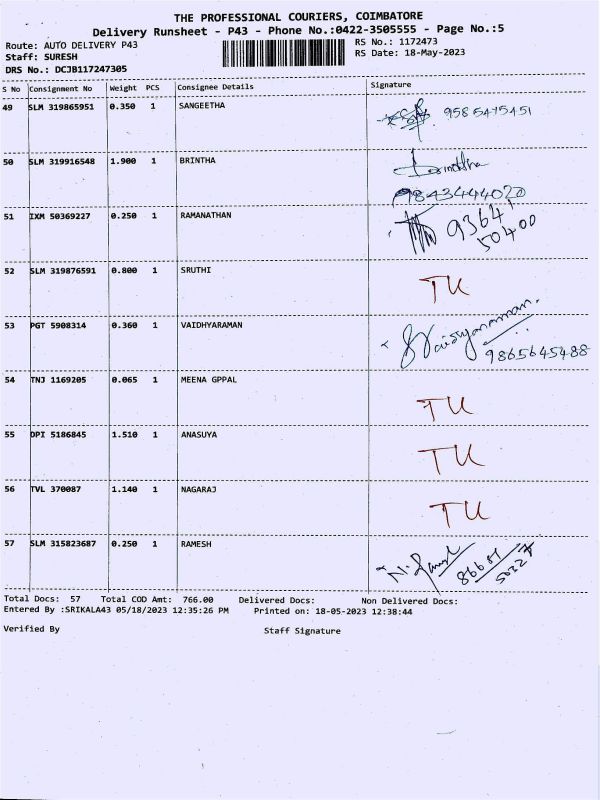 THE PROFESSIONAL COURIERS, COIMBATORE
Delivery Runsheet - P43 - Phone No.:0422-3505555 - Page No.:5
Route: AUTO DELIVERY P43 RS No.: 1172473
Staff: SURESH RS Date: 18-May-2023
DRS No.: DCJB117247305
S No Consignment No Weight PCS Consignee Details Signature
49 SLM 319865951 0.350 1 SANGEETHA 9585475451
50 SLM 319916548 1.900 1 BRINTHA Brindha
9843444020
51 IXM 50369227 0.250 1 RAMANATHAN 9364
50400
52 SLM 319876591 0.800 1 SRUTHI TU
53 PGT 5908314 0.360 1 VAIDHYARAMAN Vaidyaraman.
9865645488
54 TNJ 1169205 0.065 1 MEENA GPPAL TU
55 OPI 5186845 1.510 1 ANASUYA TU
56 TVL 370087 1.140 1 NAGARAJ TU
57 SLM 315823687 0.250 1 RAMESH
Total Docs: 57 Total COD Amt: 766.00 Delivered Docs: Non Delivered Docs:
Entered By :SRIKALA43 05/18/2023 12:35:26 PM Printed on: 18-05-2023 12:38:44
Verified By Staff Signature